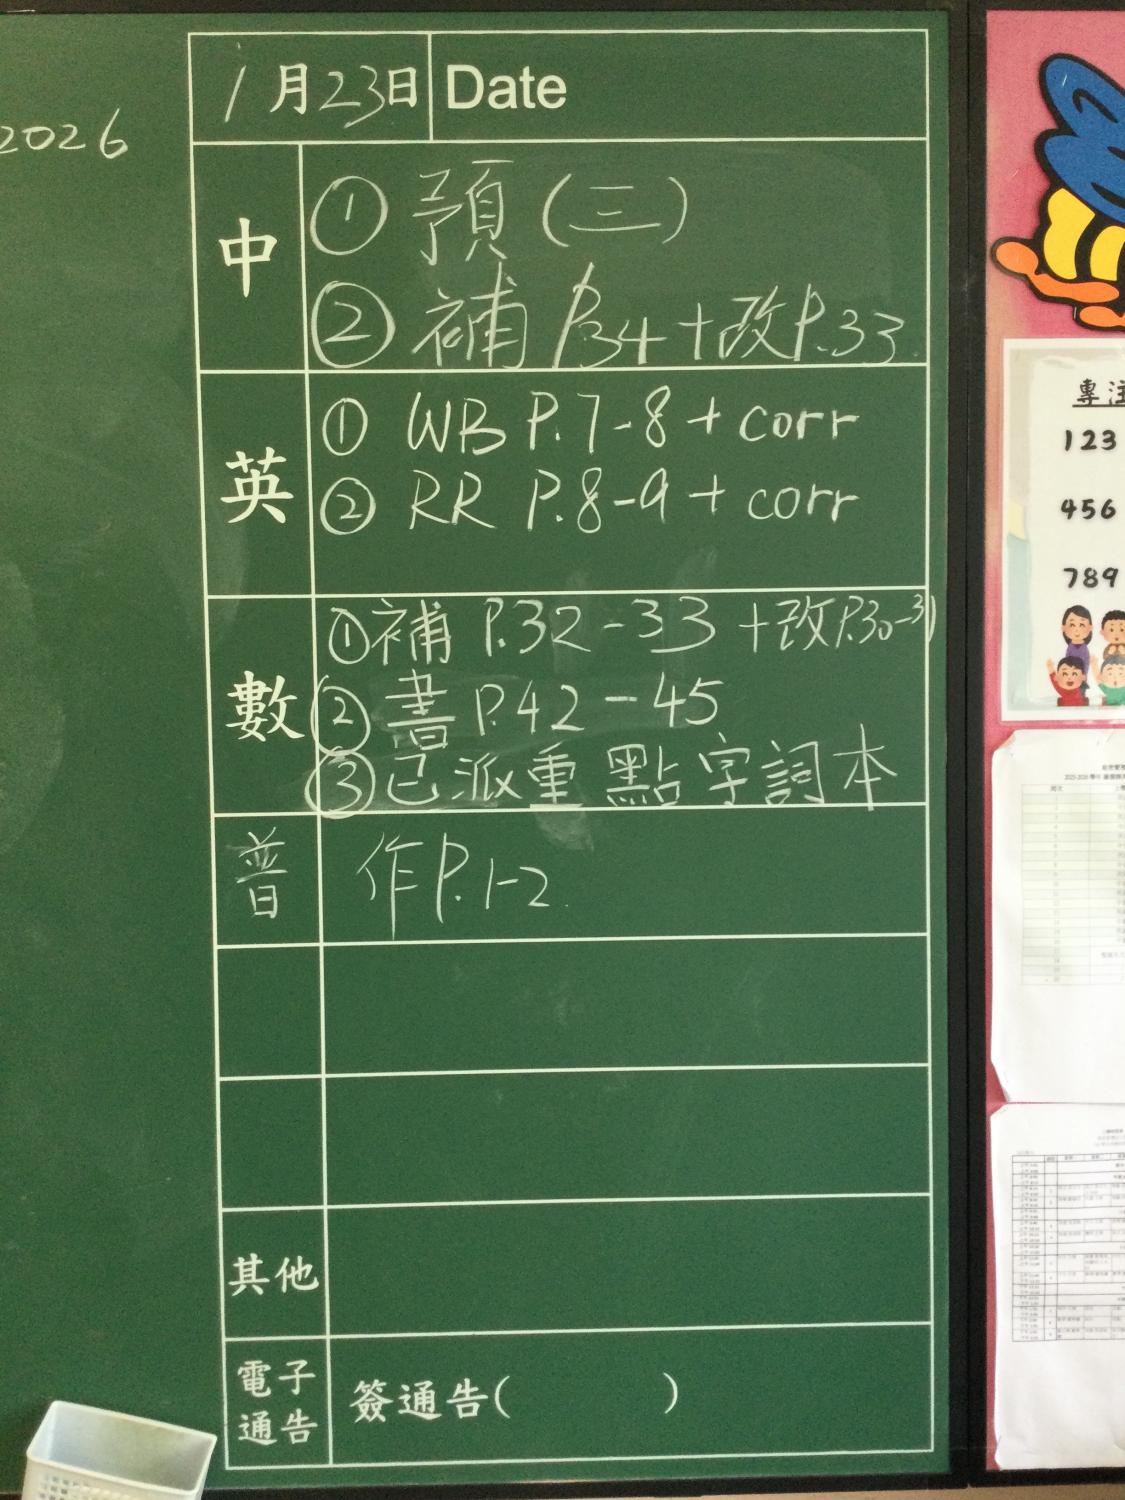 2026
1月23日 Date
中
① 預(三)
② 補 P.34+改P.33.
英
① WB P.7-8 + corr
② RR P.8-9 + corr
數
① 補 P.32-33 +改P.30-31
② 書 P.42-45
③ 已派重點字詞本
普
作P.1-2.
其他
電子通告
簽通告( )
專注
123
456
789